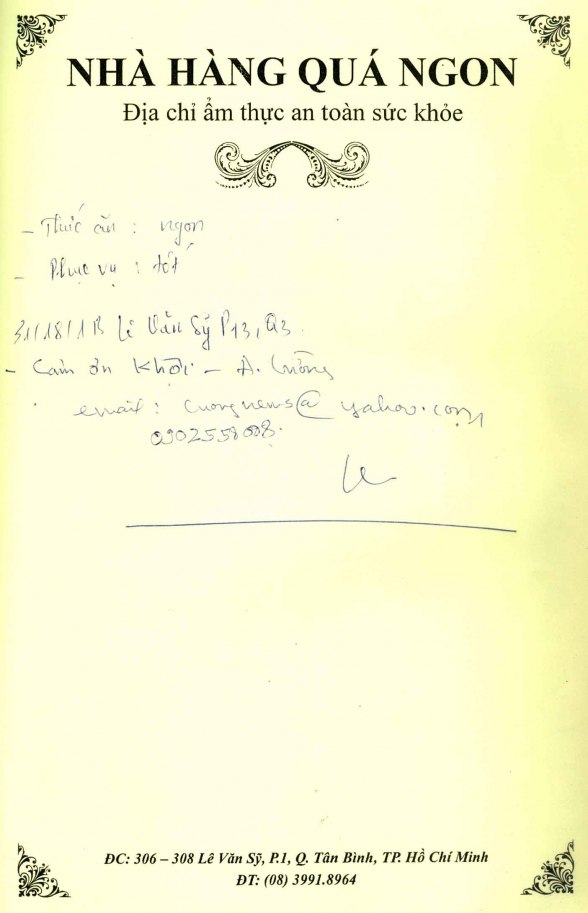 NHÀ HÀNG QUÁ NGON
Địa chỉ ẩm thực an toàn sức khỏe
- Thức ăn : ngon
- Phục vụ : tốt
311/18/1B Lê Văn Sỹ P13, Q3.
- Cảm ơn Khôi - A. Cường
email : cuongnews@yahoo.com
ĐC: 306 – 308 Lê Văn Sỹ, P.1, Q. Tân Bình, TP. Hồ Chí Minh
ĐT: (08) 3991.8964